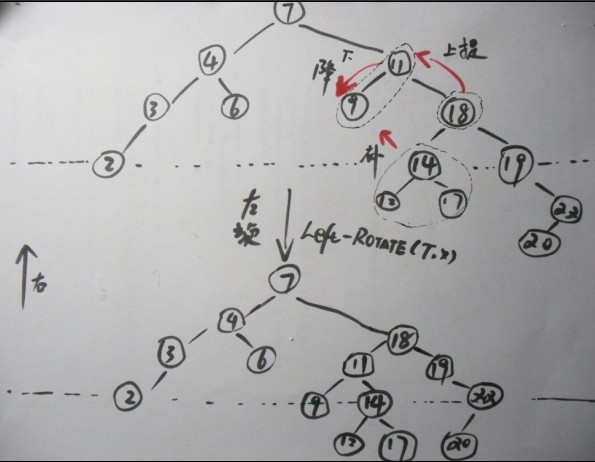 7
4 下降 11 上提
3 6 9 18
2 补 14 19
12 17 22
20
左旋 Left-ROTATE(T.x)
右
7
4 18
3 6 11 19
2 9 14 22
12 17 20